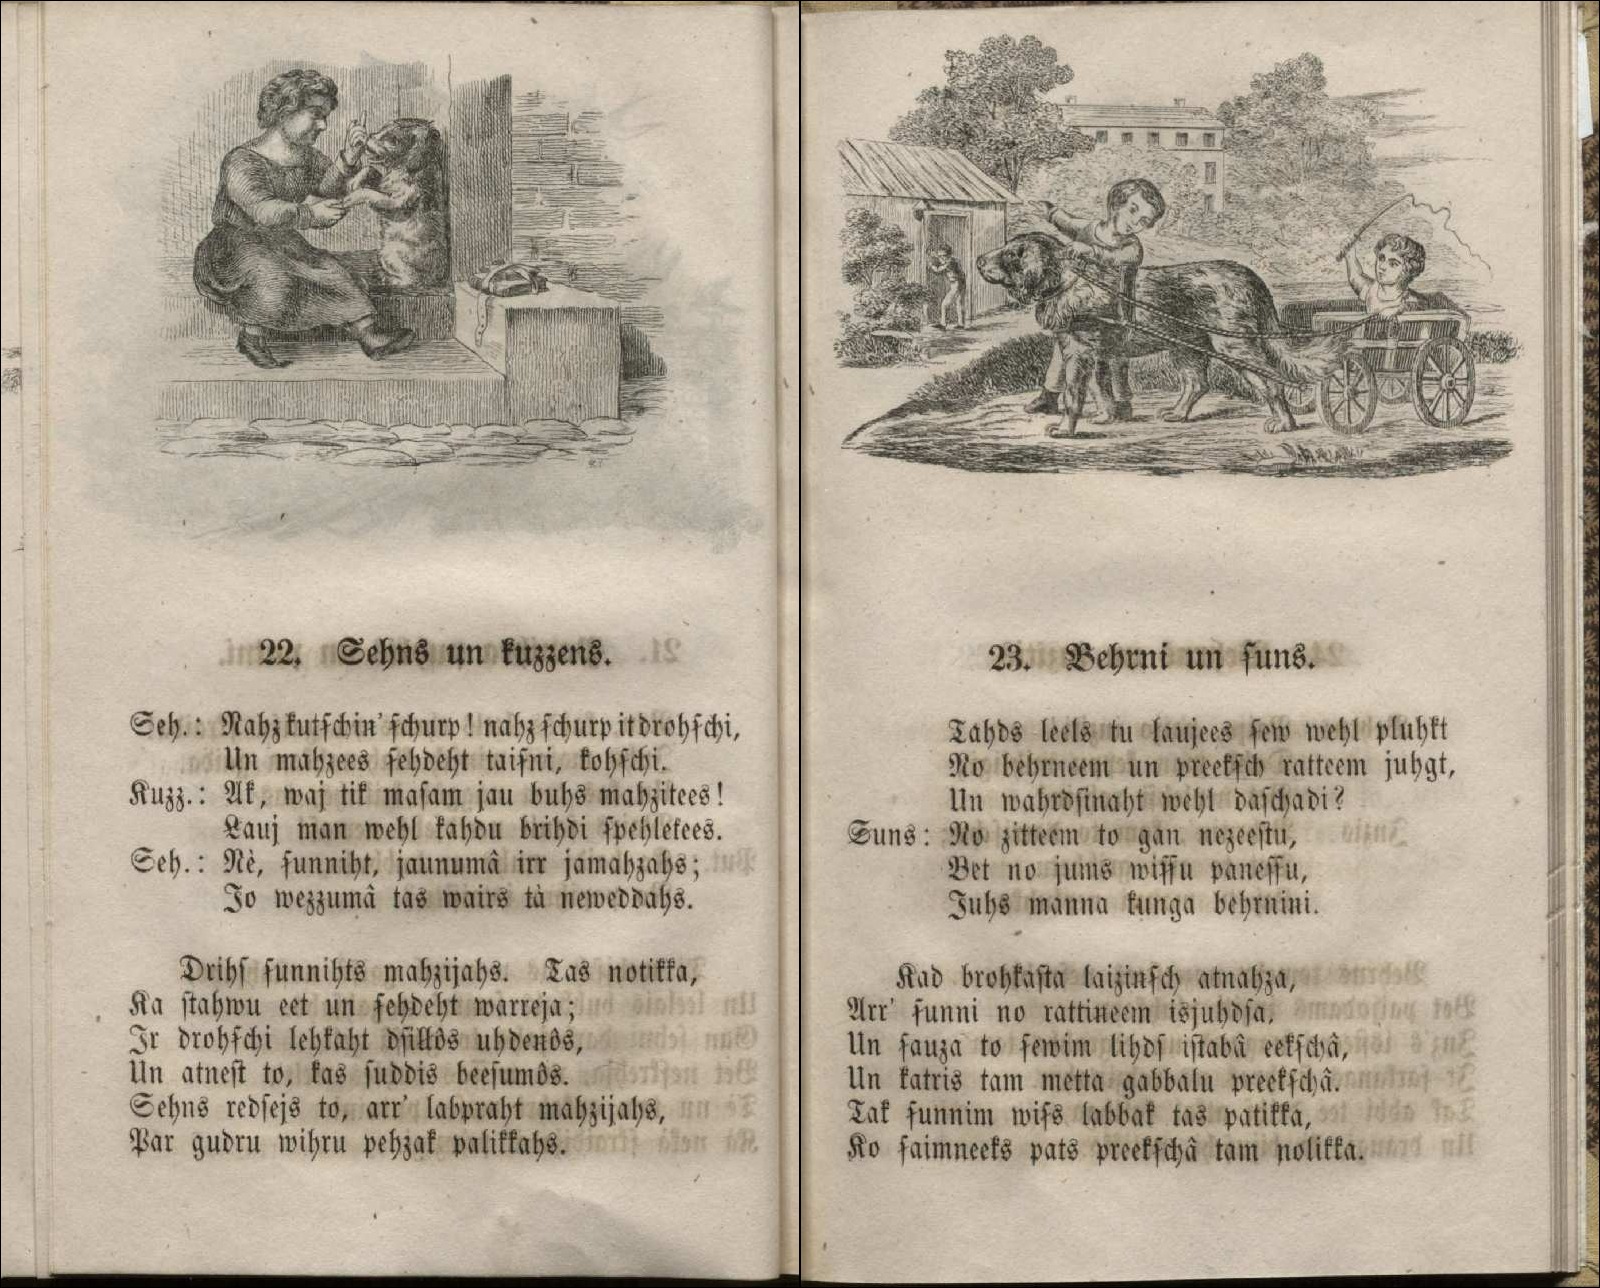 22. Sehns un kuzzens.
Seh.: Nahz kutschin' schurp! nahz schurp it drohschi,
Un mahzees sehdeht taisni, kohschi.
Kuzz.: Ak, waj tik masam jau buhs mahzitees!
Lauj man wehl kahdu brihdi spehletees.
Seh.: Nè, sunniht, jaunumâ irr jamahzahs;
Jo wezzumâ tas wairs tà neweddahs.
Drihs sunnihts mahzijahs. Tas notikka,
Ka stahwu eet un sehdeht warreja;
Ir drohschi lehkaht dsillôs uhdenôs,
Un atnest to, kas suddis beesumôs.
Sehns redsejs to, arr' labpraht mahzijahs,
Par gudru wihru pehzak palikkahs.
23. Behrni un suns.
Tahds leels tu laujees sew wehl pluhkt
No behrneem un preeksch ratteem juhgt,
Un wahrdsinaht wehl daschadi?
Suns: No zitteem to gan nezeestu,
Bet no jums wissu panessu,
Juhs manna kunga behrnini.
Kad brohkasta laizinsch atnahza,
Arr' sunni no rattineem isjuhdsa,
Un sauza to sewim lihds istabâ eekschâ,
Un katris tam metta gabbalu preekschâ.
Tak sunnim wiss labbak tas patikka,
Ko saimneeks pats preekschâ tam nolikka.